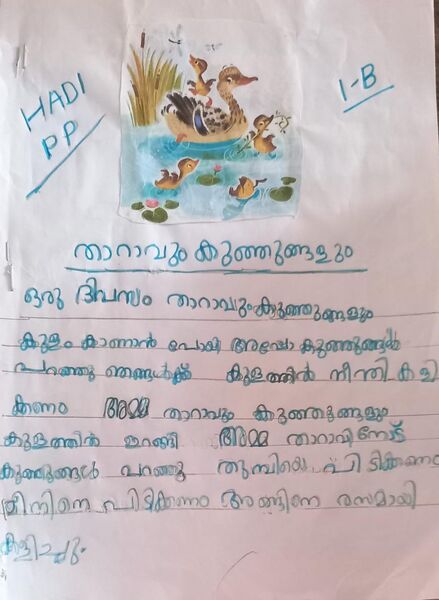 HADI
PP
1-B
താറാവും കുഞ്ഞുങ്ങളും
ഒരു ദിവസം താറാവും കുഞ്ഞുങ്ങളും
കുളം കാണാൻ പോയി അപ്പോ കുഞ്ഞുങ്ങൾ
പറഞ്ഞു ഞങ്ങൾക്ക് കുളത്തിൽ നീന്തി കളി
ക്കണം അമ്മ താറാവും കുഞ്ഞുങ്ങളും
കുളത്തിൽ ഇറങ്ങി അമ്മ താറാവിനോട്
കുഞ്ഞുങ്ങൾ പറഞ്ഞു തുമ്പിയെ പിടിക്കണം
മീനിനെ പിടിക്കണം അങ്ങിനെ രസമായി
കളിച്ചു.